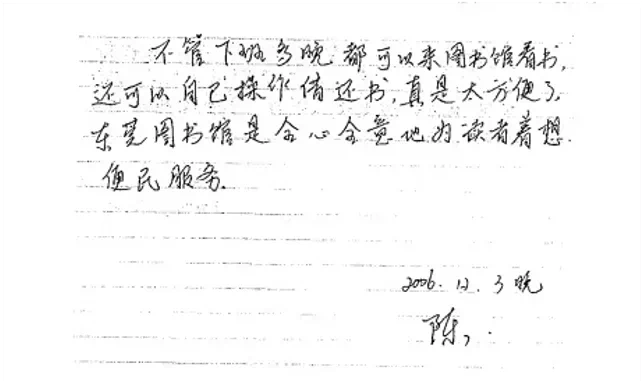 不管下班多晚都可以来图书馆看书,
还可以自己操作借还书,真是太方便了.
东莞图书馆是全心全意地为读者着想.
便民服务.
2006.12.3晚
陈